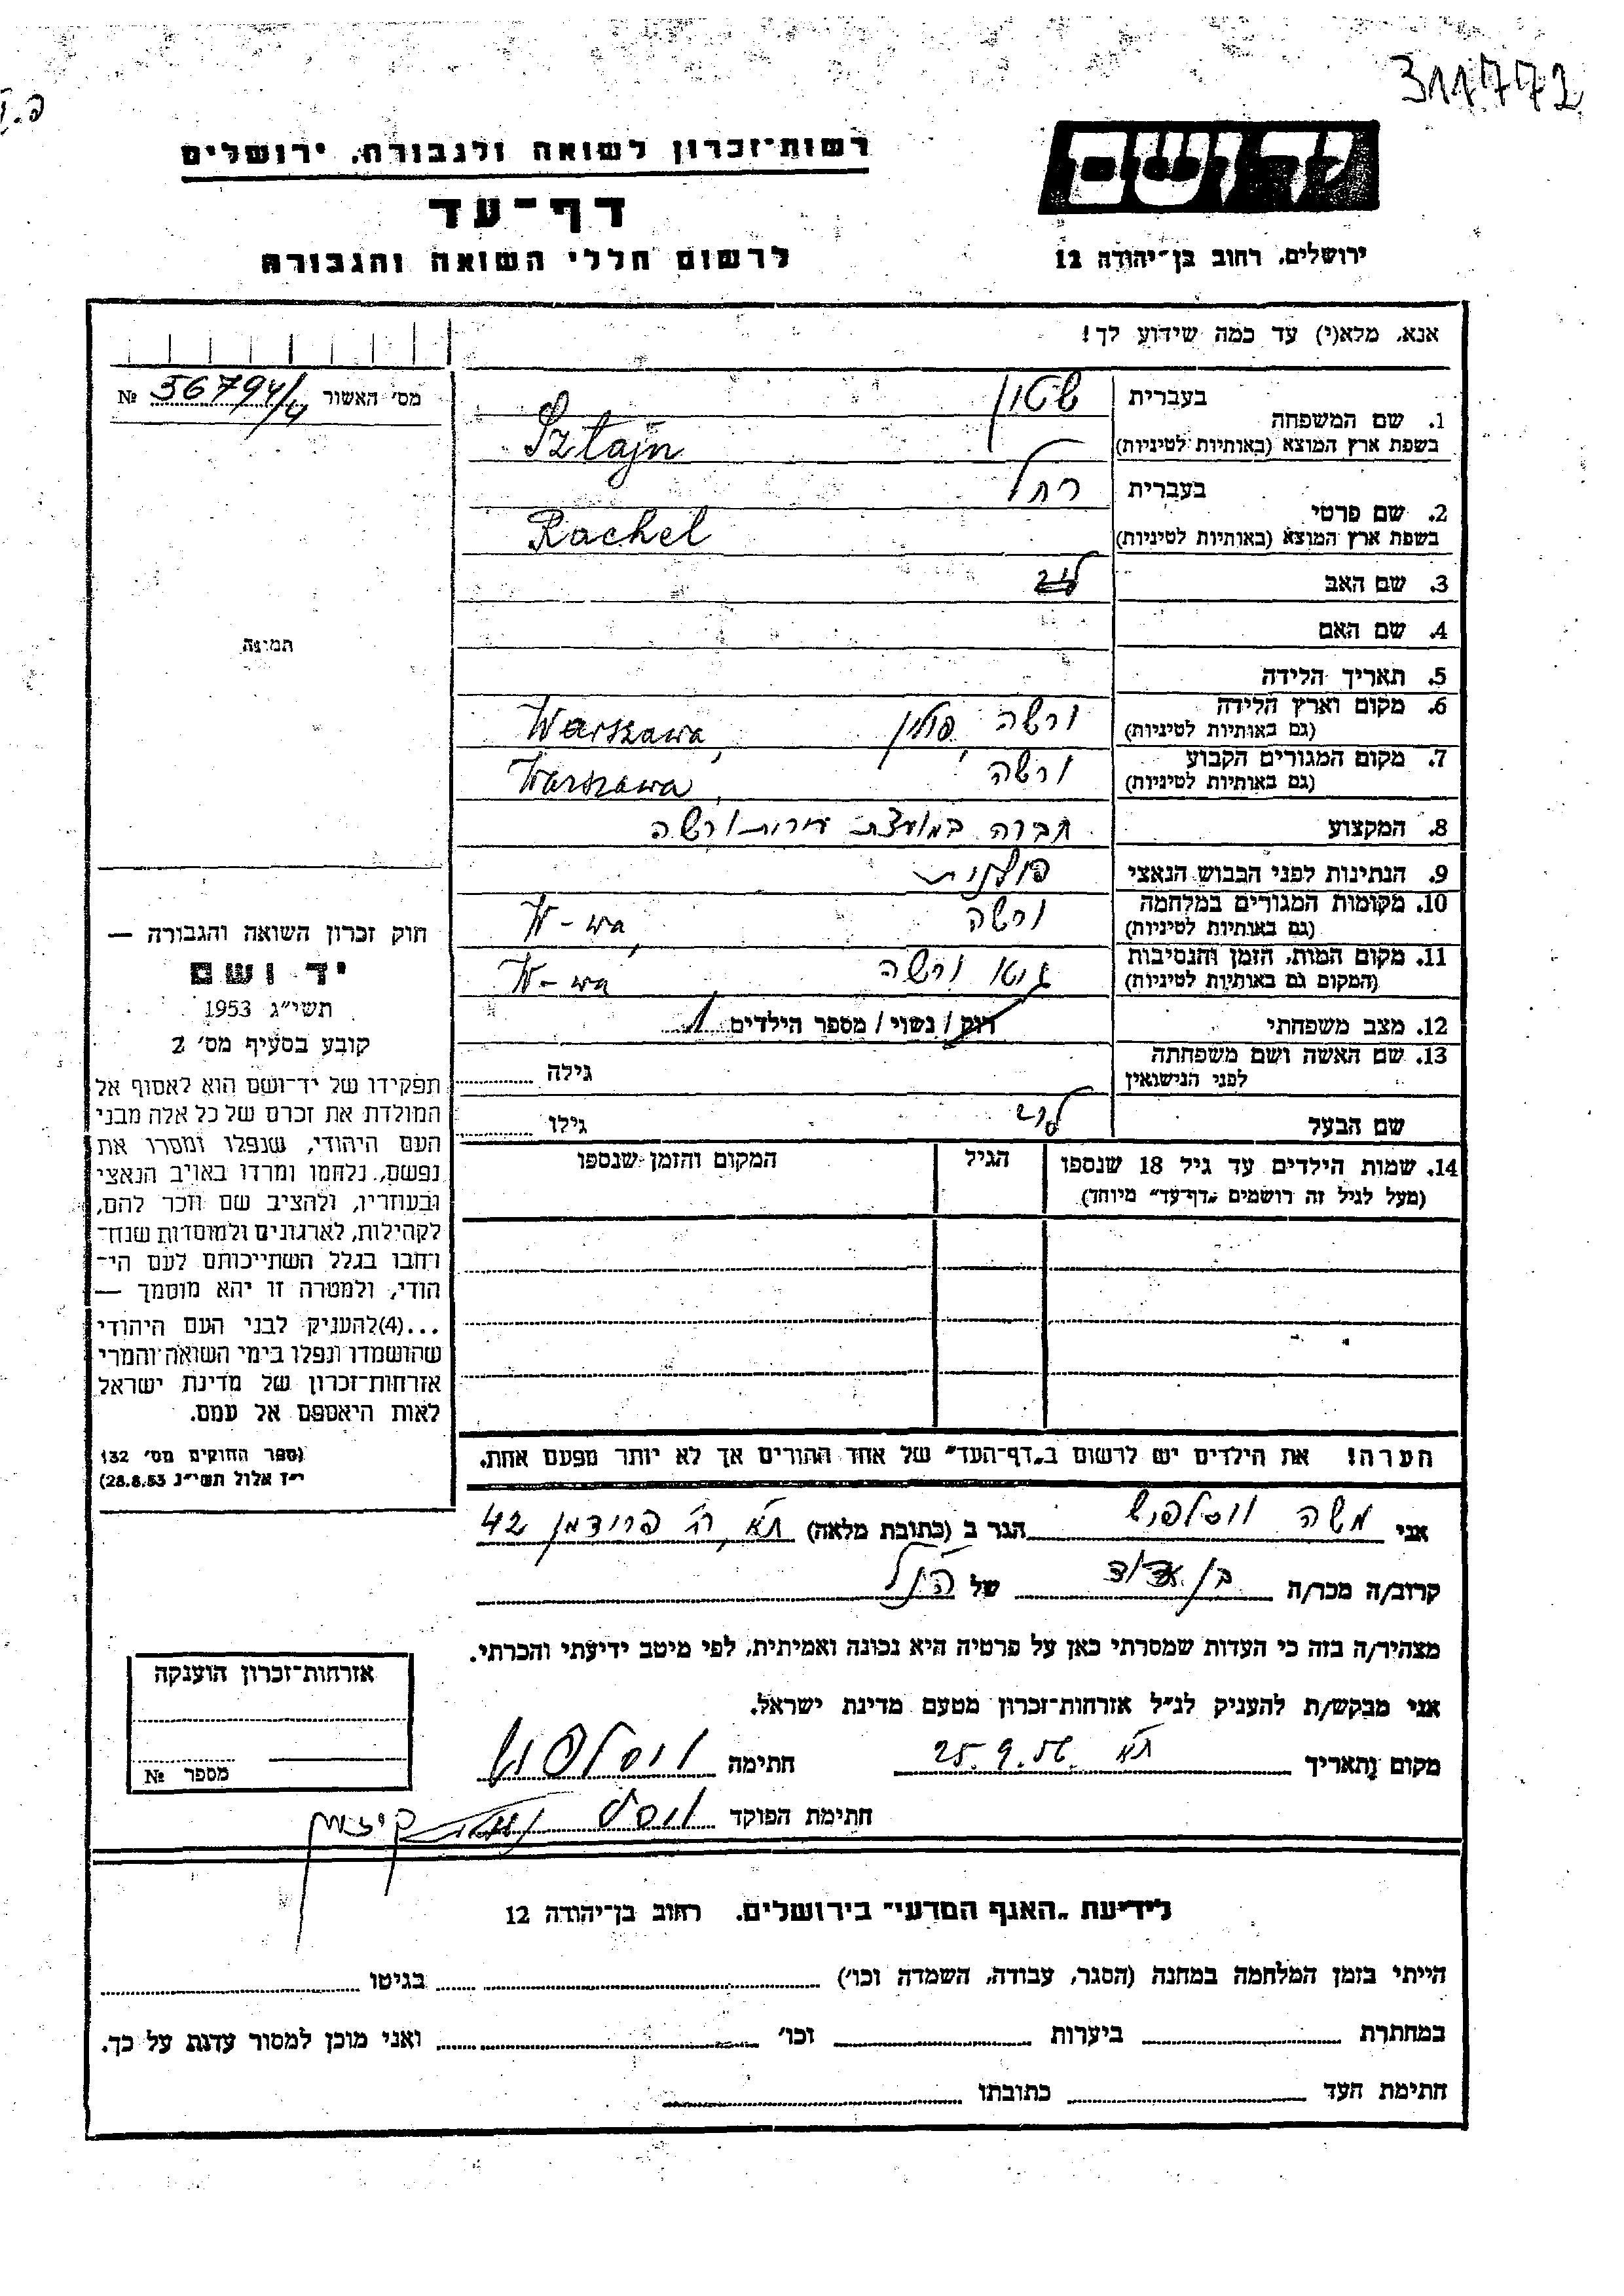 311772
יד ושם
רשות־זכרון לשואה ולגבורה, ירושלים
דף־עד
ירושלים, רחוב בן־יהודה 12
לרשום חללי השואה והגבורה
אנא, מלא(י) עד כמה שידוע לך!
מס' האשור № 56794/4
1. שם המשפחה בעברית
בשפת ארץ המוצא (באותיות לטיניות) Sztajn
2. שם פרטי בעברית רחל
בשפת ארץ המוצא (באותיות לטיניות) Rachel
3. שם האב
4. שם האם
תמונה
5. תאריך הלידה
6. מקום וארץ הלידה ורשה, פולין Warszawa,
(גם באותיות לטיניות)
7. מקום המגורים הקבוע ורשה Warszawa,
(גם באותיות לטיניות)
8. המקצוע חברה במועצת עירית ורשה
9. הנתינות לפני הכבוש הנאצי פולנית
10. מקומות המגורים במלחמה ורשה W-wa,
(גם באותיות לטיניות)
11. מקום המות, הזמן והנסיבות גטו ורשה W-wa
(המקום גם באותיות לטיניות)
12. מצב משפחתי רווק / נשוי / מספר הילדים 1
13. שם האשה ושם משפחתה גילה
לפני הנישואין
שם הבעל גילו
14. שמות הילדים עד גיל 18 שנספו הגיל המקום והזמן שנספו
(מעל לגיל זה רושמים „דף־עד" מיוחד)
חוק זכרון השואה והגבורה —
יד ושם
תשי״ג 1953
קובע בסעיף מס' 2
תפקידו של יד־ושם הוא לאסוף אל
המולדת את זכרם של כל אלה מבני
העם היהודי, שנפלו ומסרו את
נפשם, נלחמו ומרדו באויב הנאצי
ובעוזריו, ולהציב שם וזכר להם,
לקהילות, לארגונים ולמוסדות שנח־
רבו בגלל השתייכותם לעם הי־
הודי, ולמטרה זו יהא מוסמך —
...(4)להעניק לבני העם היהודי
שהושמדו ונפלו בימי השואה והמרי
אזרחות־זכרון של מדינת ישראל
לאות היאספם אל עמם.
(ספר החוקים מס' 132
י״ז אלול תשי״ג 28.8.53)
הערה! את הילדים יש לרשום ב„דף־העד" של אחד ההורים אך לא יותר מפעם אחת.
אני משה הגר ב (כתובת מלאה) ת״א, רח' פרידמן 42
קרוב/ה מכר/ה בן דוד של הנ״ל
מצהיר/ה בזה כי העדות שמסרתי כאן על פרטיה היא נכונה ואמיתית, לפי מיטב ידיעתי והכרתי.
אני מבקש/ת להעניק לנ״ל אזרחות־זכרון מטעם מדינת ישראל.
מקום ותאריך ת״א 25.9.56 חתימה
חתימת הפוקד
אזרחות־זכרון הוענקה
מספר №
לידיעת „האגף המדעי" בירושלים. רחוב בן־יהודה 12
הייתי בזמן המלחמה במחנה (הסגר, עבודה, השמדה וכו') בגיטו
במחתרת ביערות וכו' ואני מוכן למסור עדות על כך.
חתימת העד כתובתו